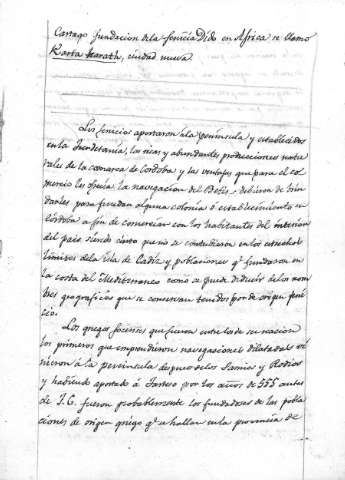 Cartago fundacion dela fenicia Dido en Africa se llamo
Karta Harath, ciudad nueva.
Los fenicios aportaron ala peninsula y establecidos
en la Turdetania, las ricas y abundantes producciones natu
rales de la comarca de Cordoba y las ventajas que para el co
mercio les ofrecia la navegacion del Betis, debieron de brin
darles para fundar alguna colonia ó establecimiento en
Cordoba a fin de comerciar con los habitantes del interior
del pais siendo cierto que no se contuvieron en los estrechos
limites dela isla de Cadiz y poblaciones qe fundaron en
la costa del Mediterraneo como se puede deducir delos nom
bres geograficos que se conservan tenidos por de origen feni
cio.
Los griegos focenses que fueron entre los de su nacion
los primeros que emprendieron navegaciones dilatadas vi
nieron á la peninsula despues delos Samios y Rodios
y habiendo aportado á Tarteso por los años de 555 antes
de J. C. fueron probablemente los fundadores de las pobla
ciones de origen griego qe se hallan en la provincia de